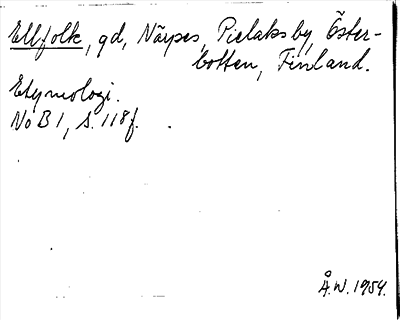 Ellfolk, gd, Närpes, Pielaksby, Öster-
botten, Finland.
Etymologi.
NoB 1, s. 118f.
Å.W. 1954.